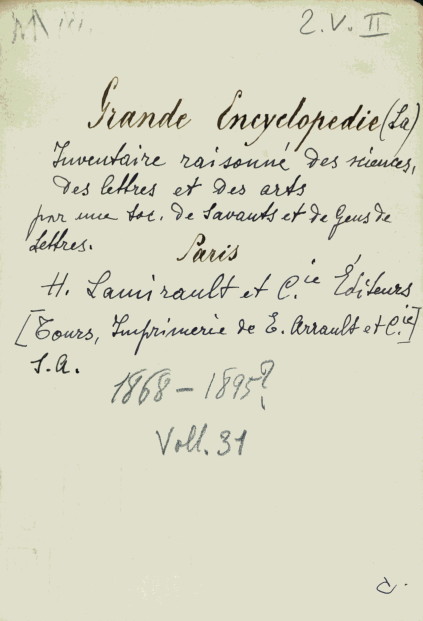 M iii.
2.V.II
Grande Encyclopedie (La)
Inventaire raisonné des sciences,
des lettres et des arts
par une soc. de Savants et de Gens de
Lettres.
Paris
H. Lamirault et C.ie Éditeurs
[Tours, Imprimerie de E. Arrault et C.ie]
S.A.
1868-1895?
Voll. 31